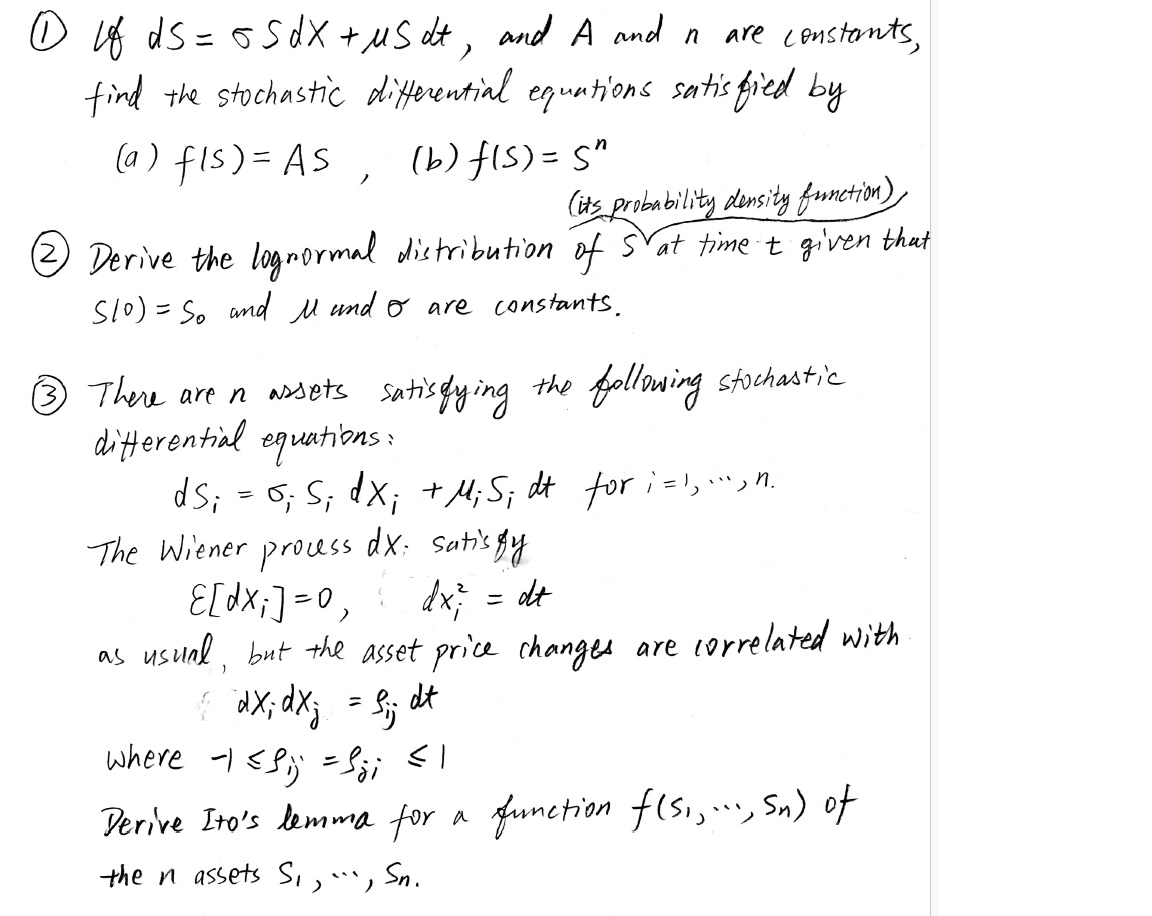 ① If dS = σSdX + μSdt, and A and n are constants,
find the stochastic differential equations satisfied by
(a) f(S) = AS , (b) f(S) = Sⁿ
(its probability density function)
② Derive the lognormal distribution of S at time t given that
S(0) = S₀ and μ and σ are constants.
③ There are n assets satisfying the following stochastic
differential equations:
dSᵢ = σᵢ Sᵢ dXᵢ + μᵢ Sᵢ dt for i=1, ..., n.
The Wiener process dXᵢ satisfy
ℰ[dXᵢ] = 0, dXᵢ² = dt
as usual, but the asset price changes are correlated with
dXᵢ dXⱼ = ρᵢⱼ dt
where -1 ≤ ρᵢⱼ = ρⱼᵢ ≤ 1
Derive Ito's lemma for a function f(S₁, ..., Sₙ) of
the n assets S₁, ..., Sₙ.